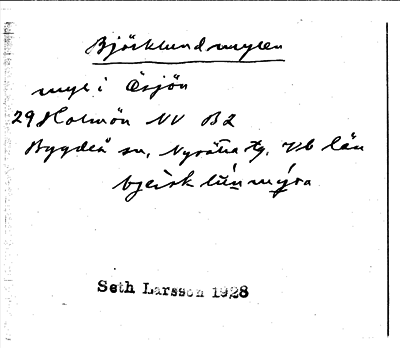 Björklundmyren
myr i Ösjön
29 Holmön NV B2
Bygdeå sn, Nysätra tg, Vb län
bjersk lünmýra
Seth Larsson 1928